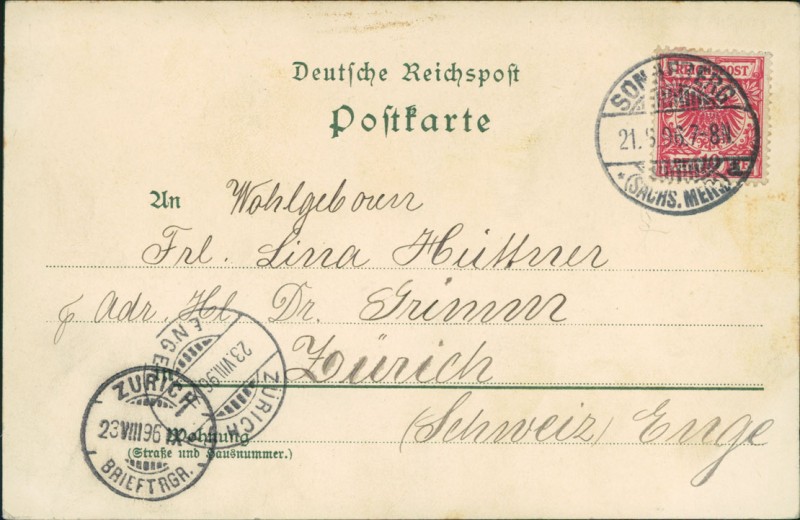 Deutsche Reichspost
Postkarte
REICHSPOST
SONNEBERG
21. 8. 96. 7-8 N.
* (SACHS. MEIN.) *
An Wohlgeboren
Frl. Lina Hüttner
p Adr. Hl. Dr. Grimm
Zürich
(Schweiz) Enge
ZÜRICH
23.VIII.96
ENGE
ZÜRICH
23.VIII.96
BRIEFTRGR.
Wohnung
(Straße und Hausnummer.)